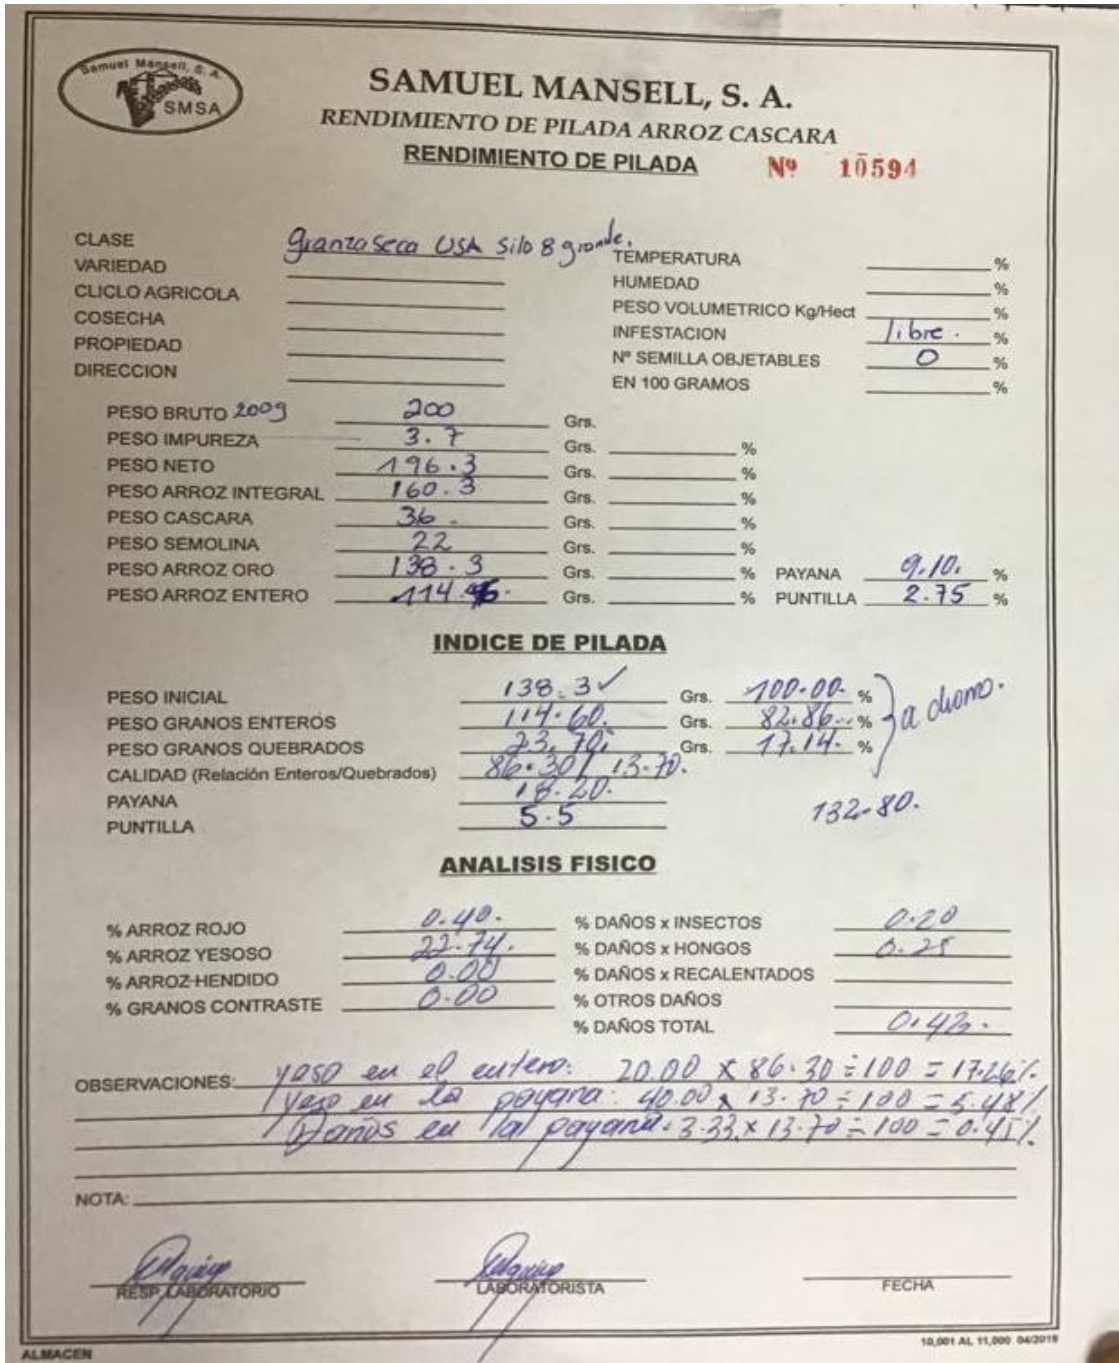 Samuel Mansell, S. A.
SMSA
SAMUEL MANSELL, S. A.
RENDIMIENTO DE PILADA ARROZ CASCARA
RENDIMIENTO DE PILADA Nº 10594
CLASE granza seca USA Silo 8 grande.
VARIEDAD
CLICLO AGRICOLA
COSECHA
PROPIEDAD
DIRECCION
TEMPERATURA %
HUMEDAD %
PESO VOLUMETRICO Kg/Hect %
INFESTACION libre. %
Nº SEMILLA OBJETABLES 0 %
EN 100 GRAMOS %
PESO BRUTO 200g 200 Grs.
PESO IMPUREZA 3.7 Grs. %
PESO NETO 196.3 Grs. %
PESO ARROZ INTEGRAL 160.3 Grs. %
PESO CASCARA 36. Grs. %
PESO SEMOLINA 22 Grs. %
PESO ARROZ ORO 138.3 Grs. % PAYANA 9.10. %
PESO ARROZ ENTERO Grs. % PUNTILLA 2.75 %
INDICE DE PILADA
PESO INICIAL 138.3 ✓ Grs. 100.00. %
PESO GRANOS ENTEROS 114.60. Grs. 82.86.. %
PESO GRANOS QUEBRADOS 23.70. Grs. 17.14. %
a
CALIDAD (Relación Enteros/Quebrados) 86.30 / 13.70.
PAYANA 18.20.
PUNTILLA 5.5
132.80.
ANALISIS FISICO
% ARROZ ROJO 0.40.
% ARROZ YESOSO 22.74.
% ARROZ HENDIDO 0.00
% GRANOS CONTRASTE 0.00
% DAÑOS x INSECTOS 0.20
% DAÑOS x HONGOS 0.25
% DAÑOS x RECALENTADOS
% OTROS DAÑOS
% DAÑOS TOTAL
OBSERVACIONES: yeso en el entero: 20.00 x 86.30 ÷ 100 = 17.26%
yeso en la payana: 40.00 x 13.70 ÷ 100 = 5.48%
Daños en la payana: 3.33 x 13.70 ÷ 100 = 0.45%
NOTA:
RESP. LABORATORIO
LABORATORISTA
FECHA
ALMACEN
10,001 AL 11,000 04/2019